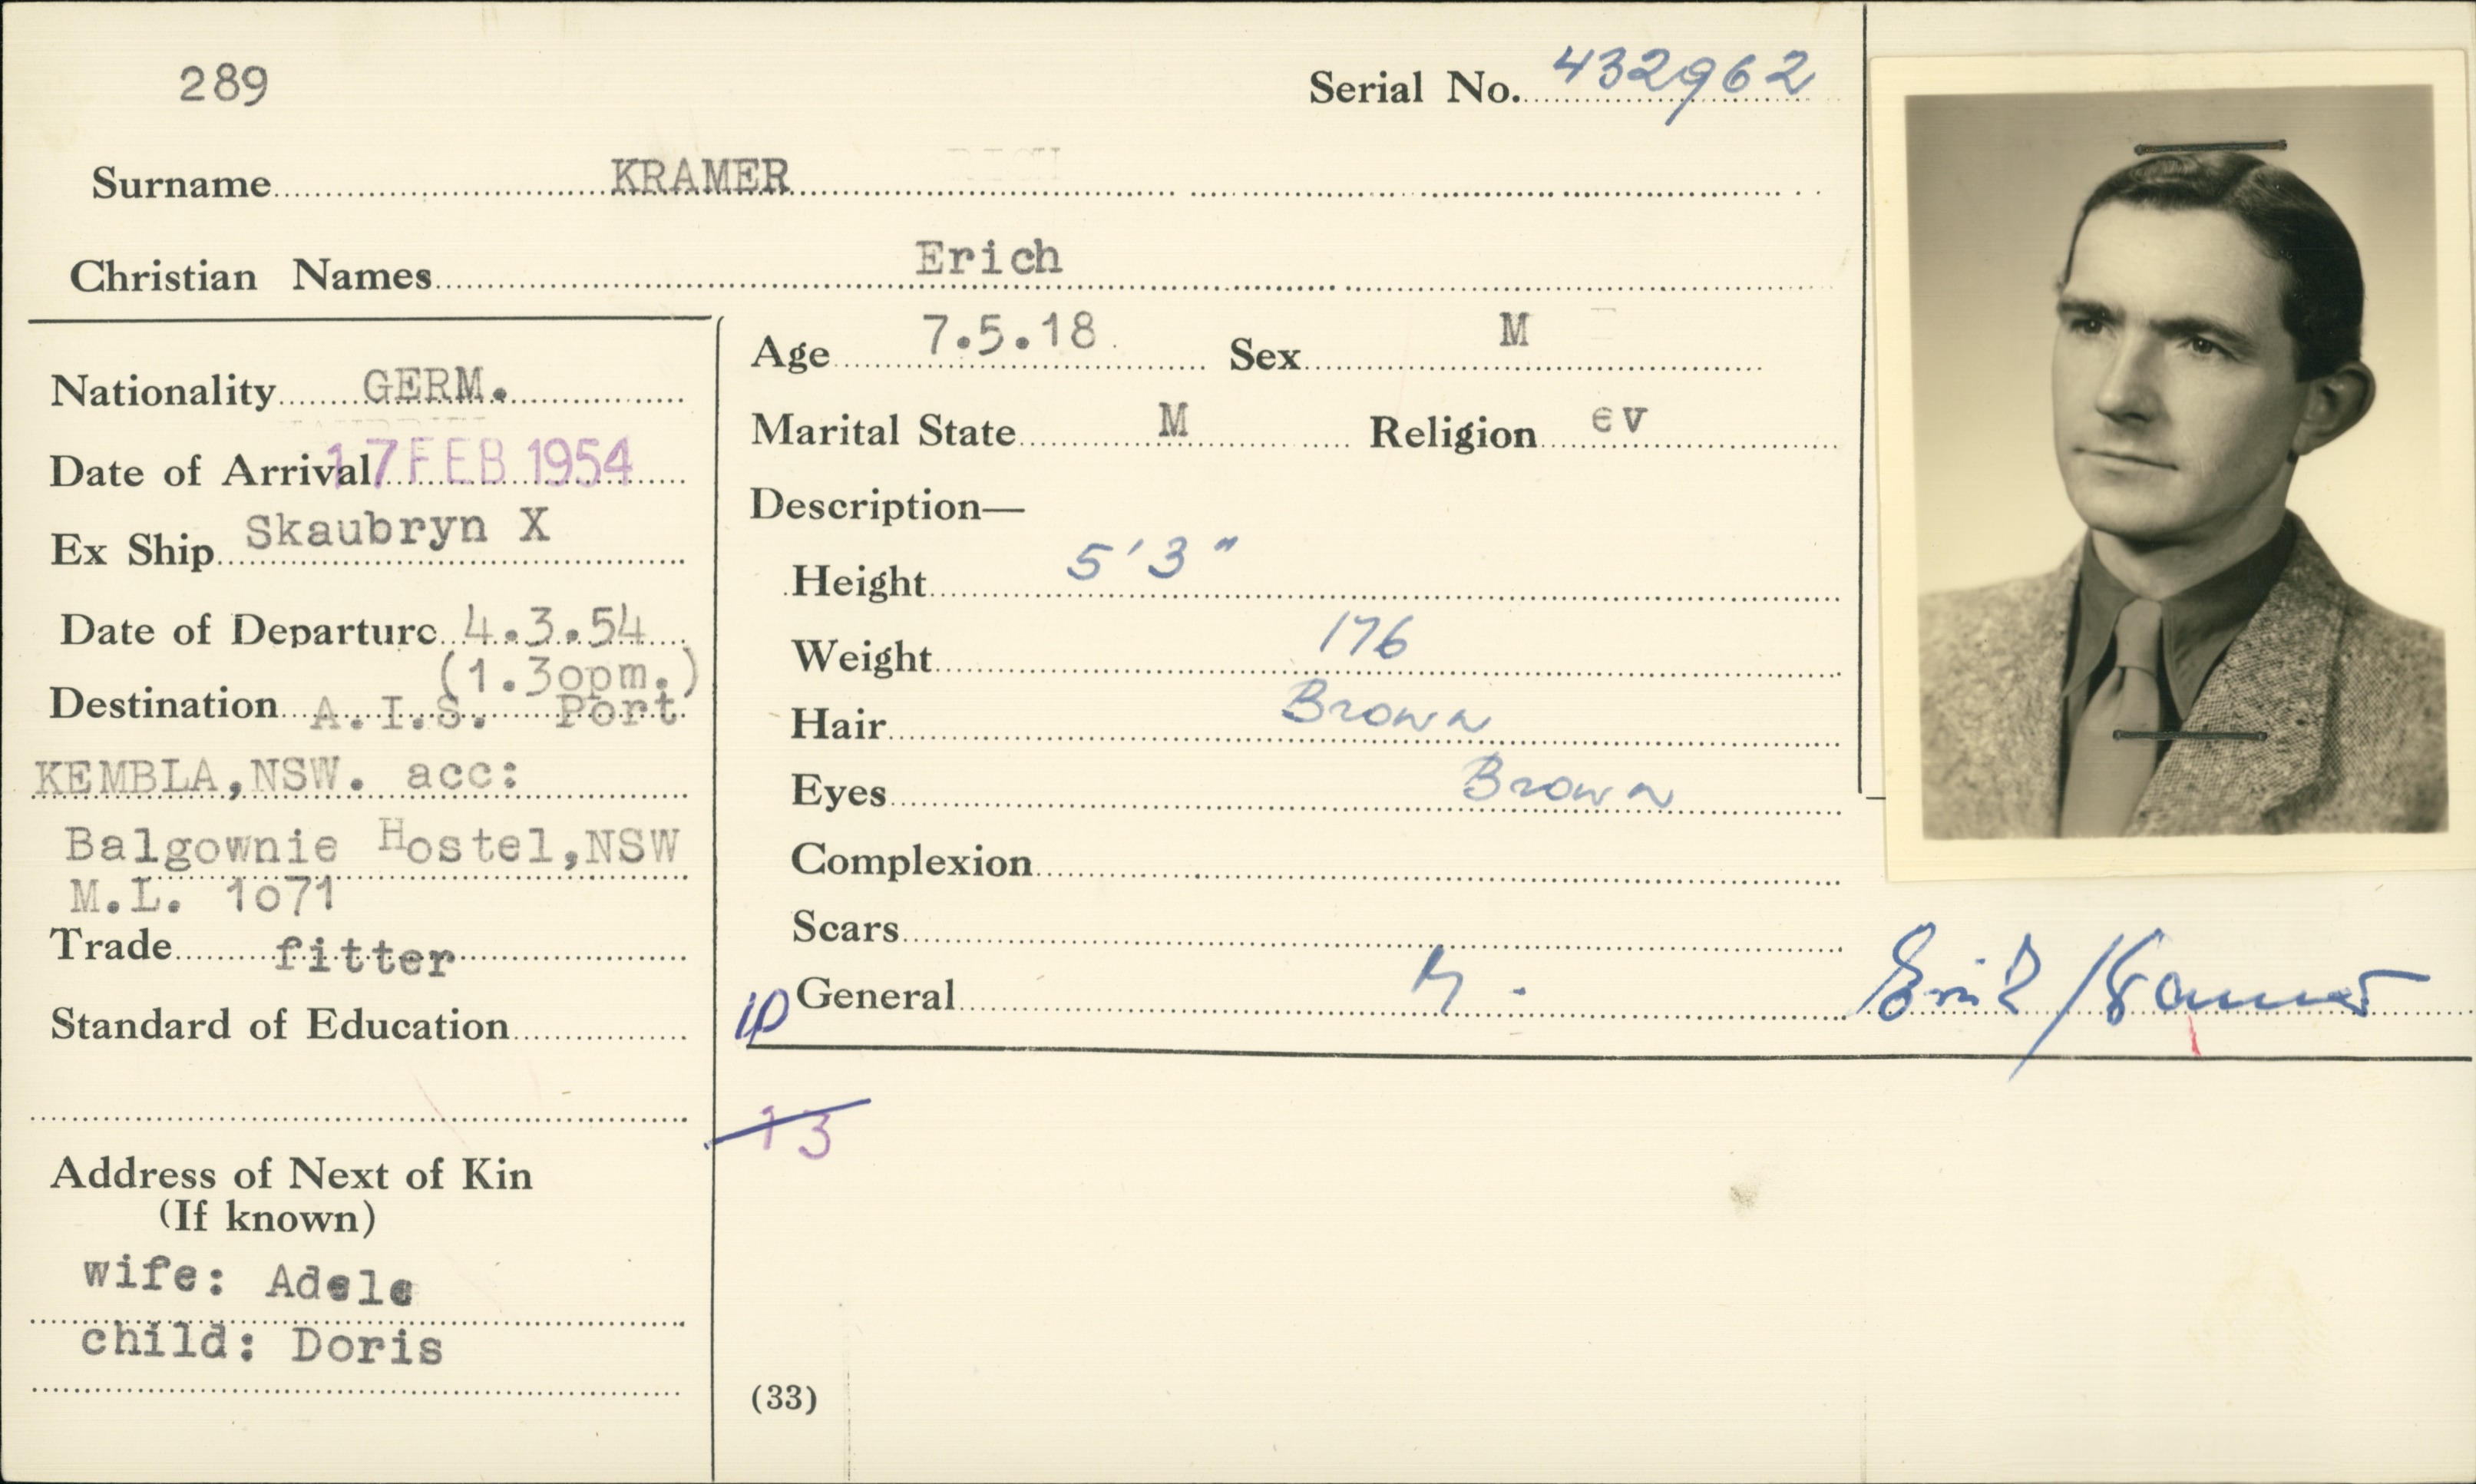 289
Serial No. 432962
Surname KRAMER
Christian Names Erich
Nationality GERM.
Date of Arrival 17 FEB 1954
Ex Ship Skaubryn X
Date of Departure 4.3.54
(1.3opm.)
Destination A.I.S. Port
KEMBLA,NSW. acc:
Balgownie Hostel,NSW
M.L. 1o71
Trade fitter
Standard of Education
Address of Next of Kin
(If known)
wife: Adele
child: Doris
Age 7.5.18 Sex M
Marital State M Religion ev
Description—
Height 5'3"
Weight 176
Hair Brown
Eyes Brown
Complexion
Scars
General
Erich Kramer
13
(33)